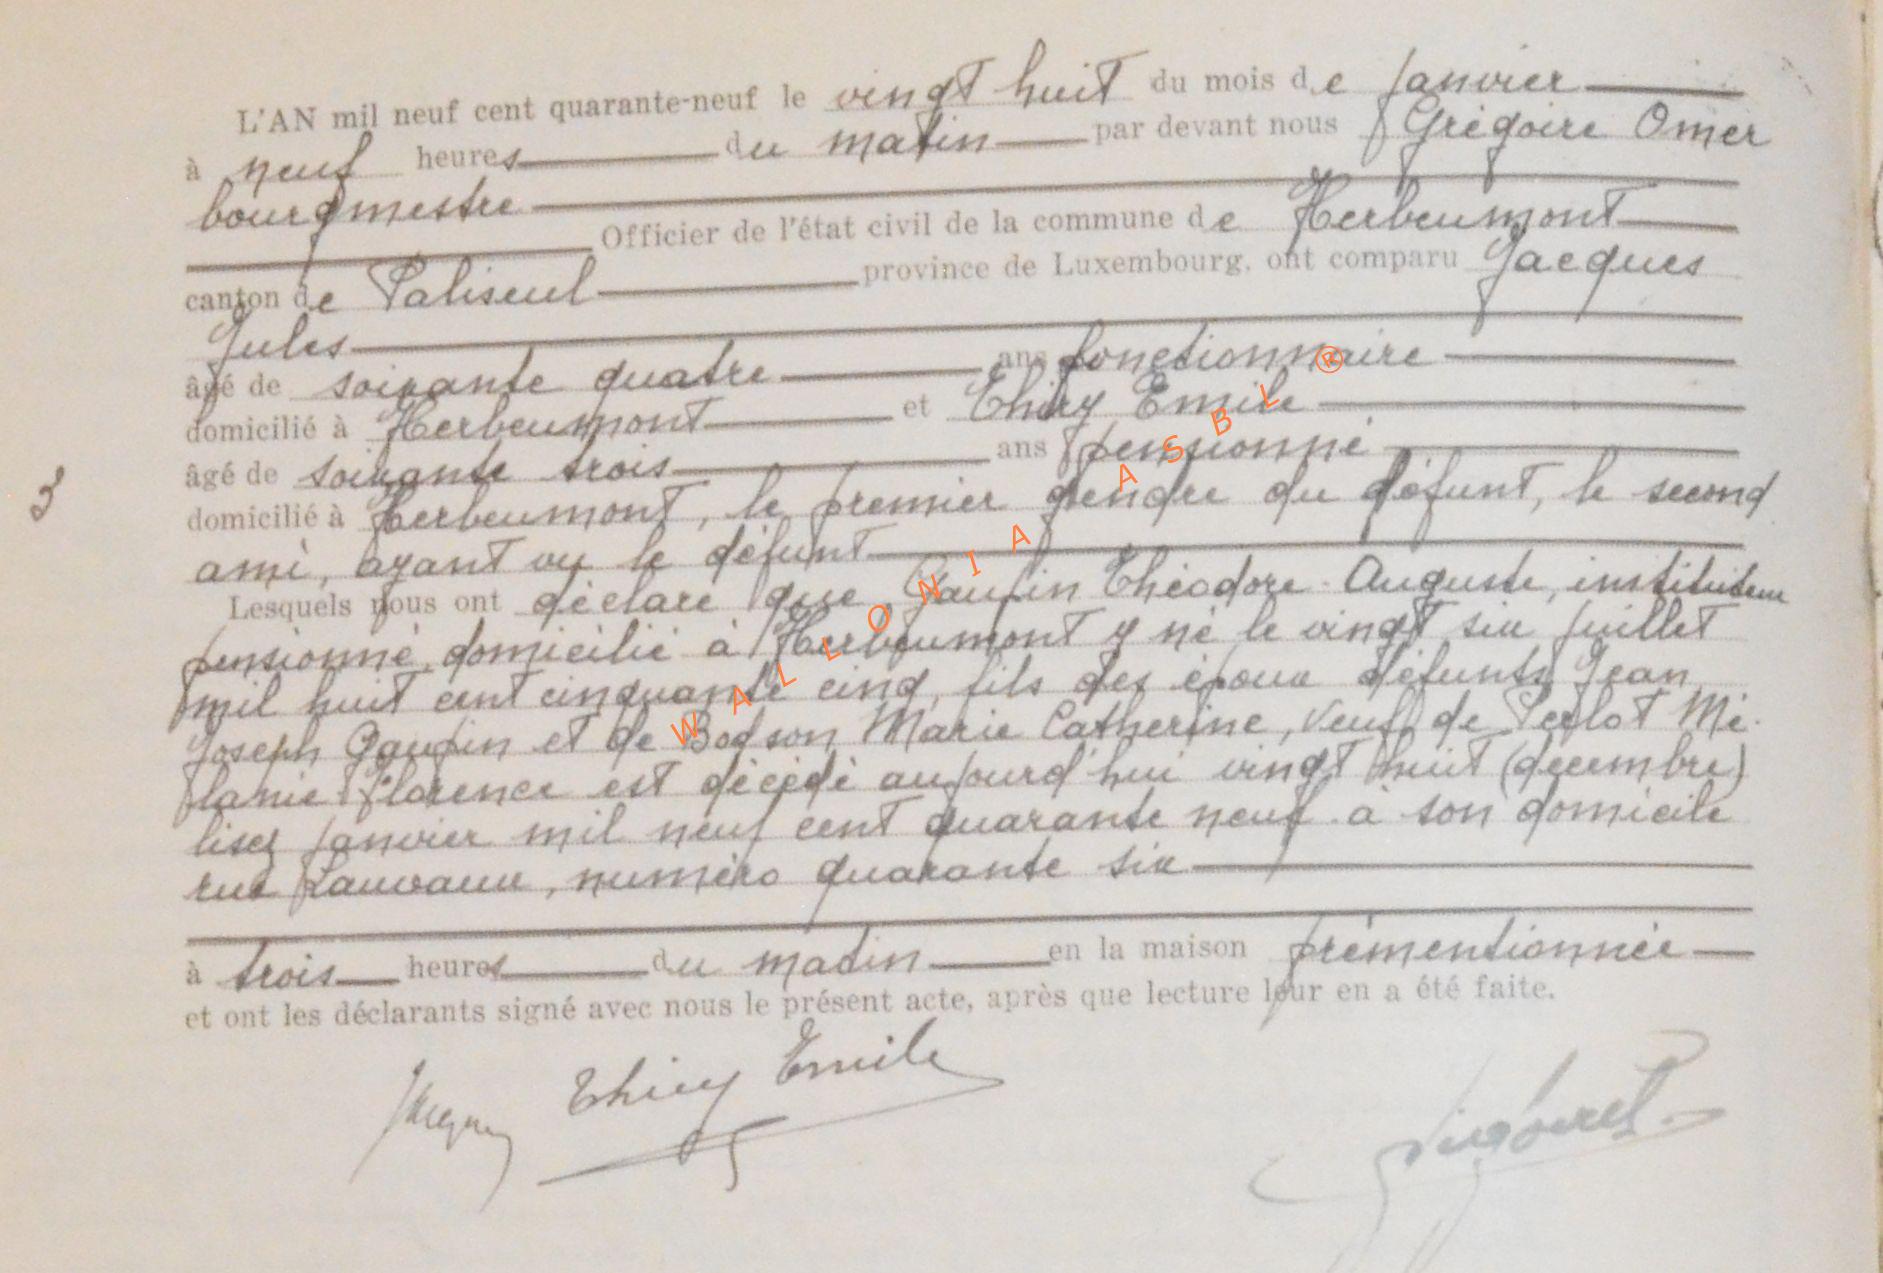 L'AN mil neuf cent quarante-neuf le vingt huit du mois de janvier
à neuf heures du matin par devant nous Grégoire Omer
bourgmestre
Officier de l'état civil de la commune de Herbeumont
canton de Paliseul province de Luxembourg, ont comparu Jacques
Jules
âgé de soixante quatre ans fonctionnaire
domicilié à Herbeumont et Thiry Emile
âgé de soixante trois ans pensionné
domicilié à Herbeumont, le premier gendre du défunt, le second
ami, ayant vu le défunt
Lesquels nous ont déclaré que Gaupin Théodore Auguste, instituteur
pensionné, domicilié à Herbeumont y né le vingt six juillet
mil huit cent cinquante cinq, fils des époux défunts Jean
Joseph Gaupin et de Bodson Marie Catherine, veuf de Perlot Mé-
lanie Florence est décédé aujourd'hui vingt huit (décembre)
lisez janvier mil neuf cent quarante neuf à son domicile
rue Lauvaux, numéro quarante six
à trois heures du matin en la maison prémentionnée
et ont les déclarants signé avec nous le présent acte, après que lecture leur en a été faite.
Jacques Thiry Emile
3
WALLONIA ASBL ®